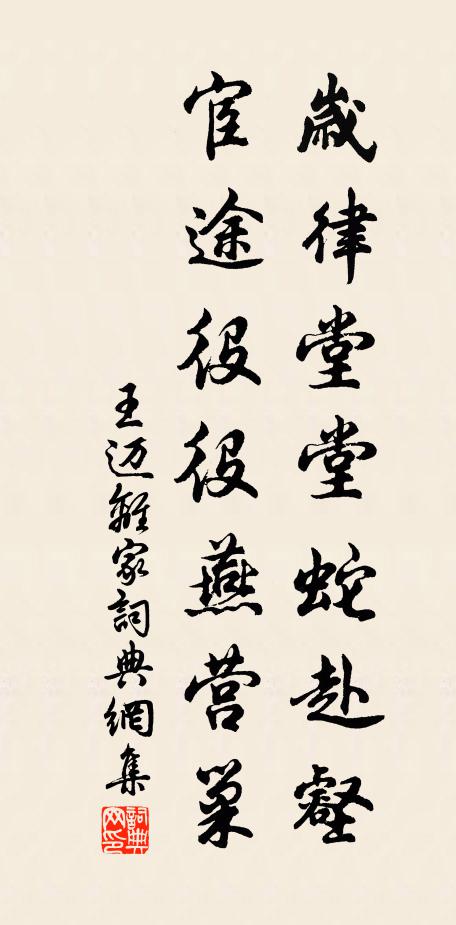 歲律堂堂蛇赴壑
宦途役役燕营巢
王迈離家詞典網集
詞典网印